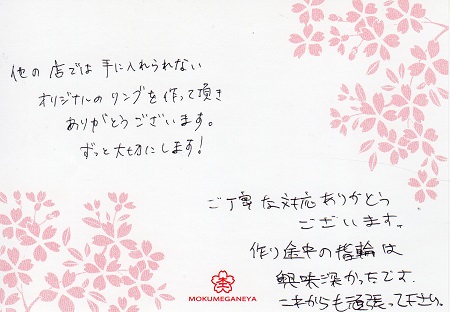 他の店では手に入れられない
オリジナルのリングを作って頂き
ありがとうございます。
ずっと大切にします!
ご丁寧な対応ありがとう
ございます。
作り途中の指輪は
興味深かったです。
これからも頑張って下さい。
MOKUMEGANEYA